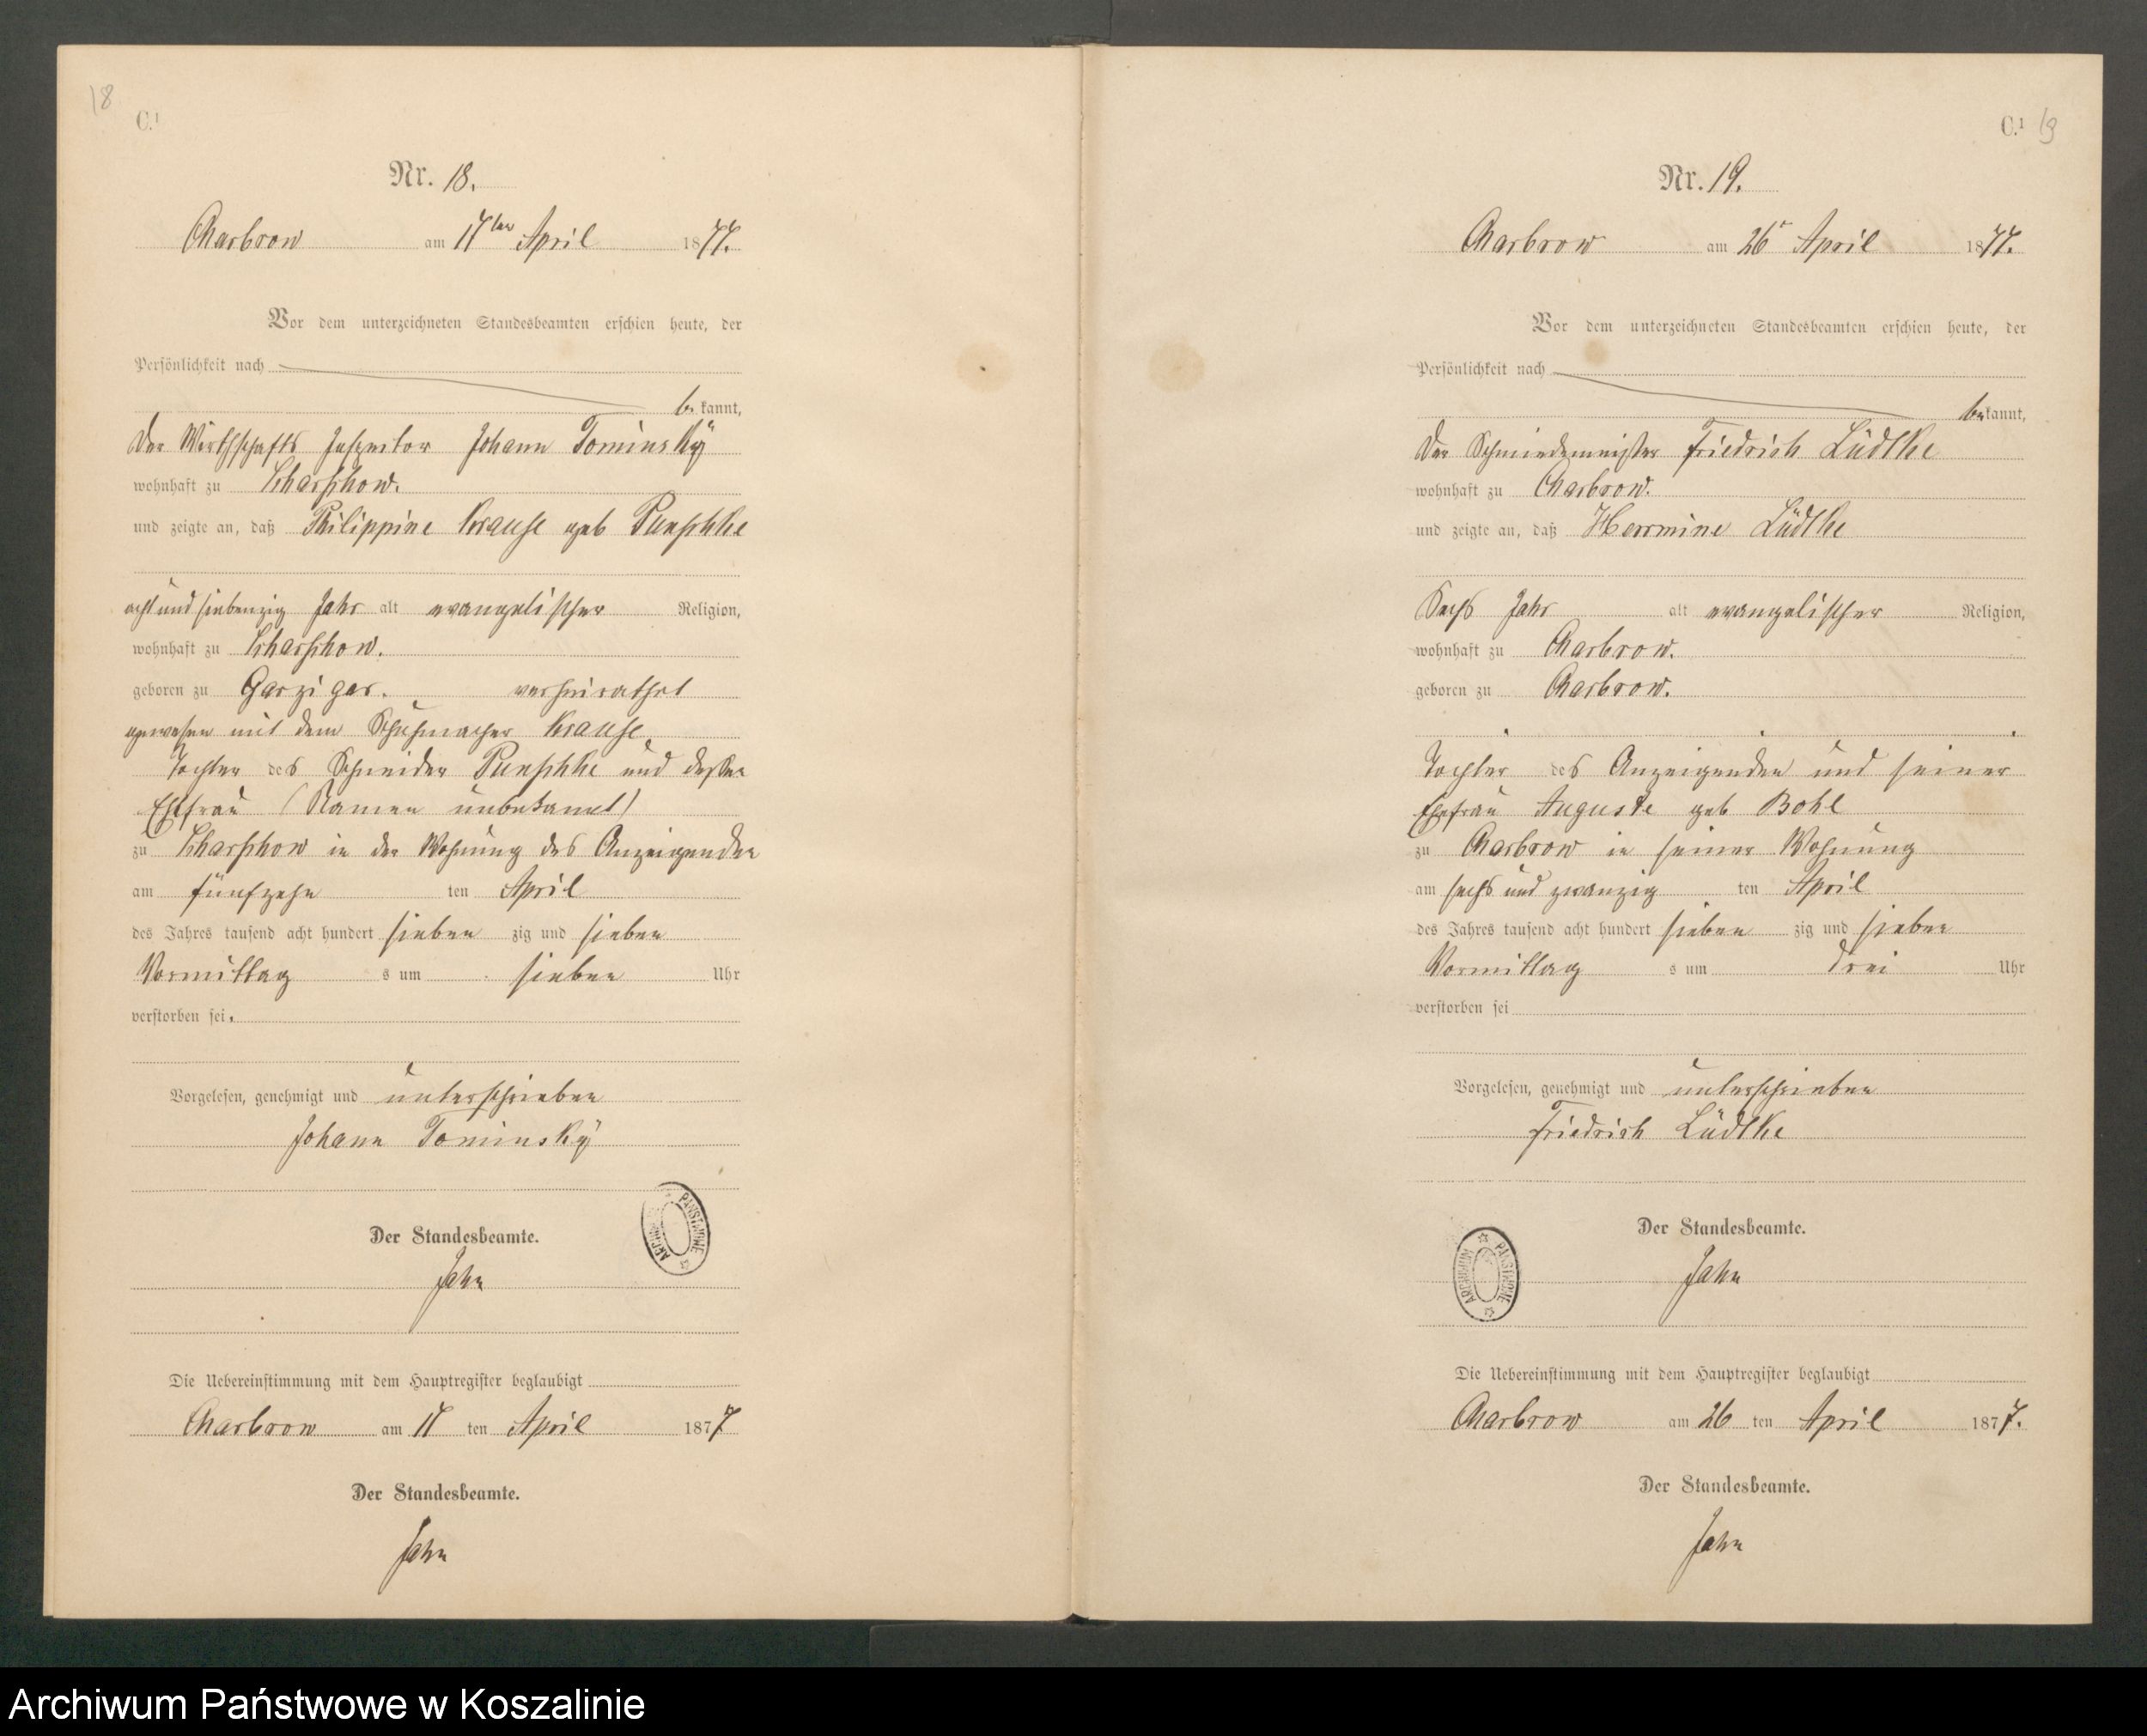 18
C.¹
Nr. 18.
Charbrow am 17ten April 1877.
Vor dem unterzeichneten Standesbeamten erschien heute, der
Persönlichkeit nach
be kannt,
der Wirthschafts Inspector Johann Tominsky
wohnhaft zu Scharschow.
und zeigte an, daß Philippine Krause geb
acht und siebenzig Jahr alt evangelischer Religion,
wohnhaft zu Scharschow.
geboren zu Garzigar. verheirathet
gewesen mit dem Schuhmacher Krause
Tochter des Schneider und dessen
Ehefrau (Namen unbekannt)
zu Scharschow in der Wohnung des Anzeigenden
am fünfzehn ten April
des Jahres tausend acht hundert sieben zig und sieben
Vormittag s um sieben Uhr
verstorben sei.
Vorgelesen, genehmigt und unterschrieben
Johann Tominsky
ARCHIWUM PAŃSTWOWE
Der Standesbeamte.
Jahn
Die Uebereinstimmung mit dem Hauptregister beglaubigt
Charbrow am 17 ten April 1877
Der Standesbeamte.
Jahn
C.¹ 19
Nr. 19.
Charbrow am 26 April 1877.
Vor dem unterzeichneten Standesbeamten erschien heute, der
Persönlichkeit nach
bekannt,
Der Schmiedemeister Friedrich Lüdtke
wohnhaft zu Charbrow.
und zeigte an, daß Herrmine Lüdtke
Sechs Jahr alt evangelischer Religion,
wohnhaft zu Charbrow.
geboren zu Charbrow.
Tochter des Anzeigenden und seiner
Ehefrau Auguste geb Bohl
zu Charbrow in seiner Wohnung
am sechs und zwanzig ten April
des Jahres tausend acht hundert sieben zig und sieben
Vormittag s um drei Uhr
verstorben sei
Vorgelesen, genehmigt und unterschrieben
Friedrich Lüdtke
Der Standesbeamte.
ARCHIWUM PAŃSTWOWE
Jahn
Die Uebereinstimmung mit dem Hauptregister beglaubigt
Charbrow am 26 ten April 1877.
Der Standesbeamte.
Jahn
Archiwum Państwowe w Koszalinie